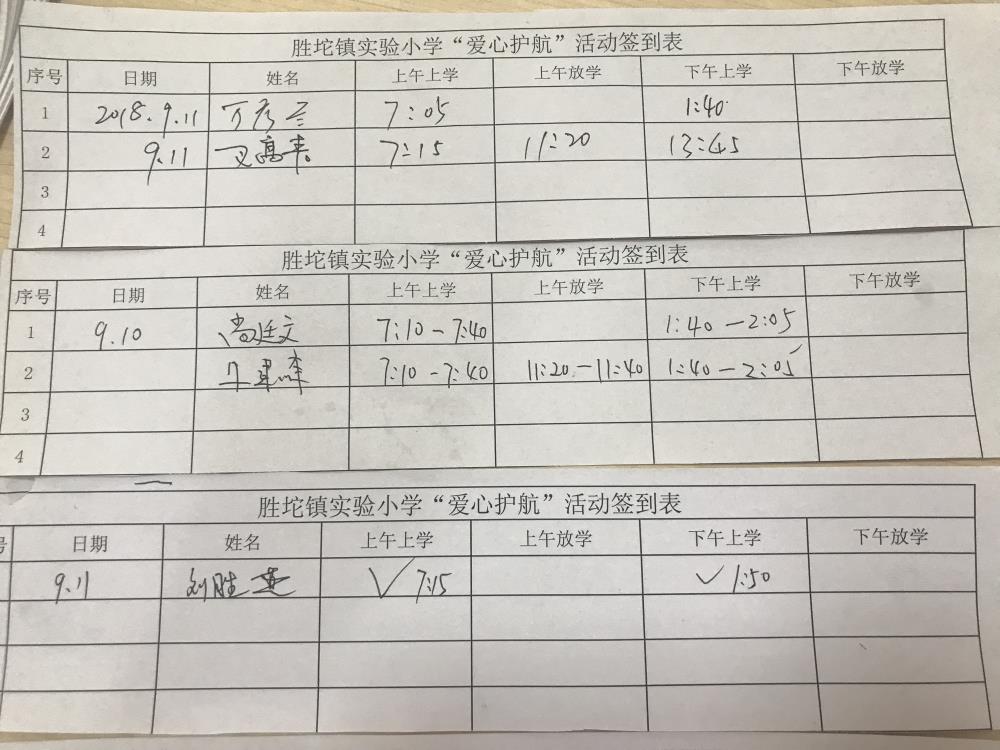 胜坨镇实验小学“爱心护航”活动签到表
序号 日期 姓名 上午上学 上午放学 下午上学 下午放学
1 2018.9.11 7:05 1:40
2 9.11 7:15 11:20 13:45
3
4
胜坨镇实验小学“爱心护航”活动签到表
序号 日期 姓名 上午上学 上午放学 下午上学 下午放学
1 9.10 尚廷文 7:10-7:40 1:40-2:05
2 7:10-7:40 11:20-11:40 1:40-2:05
3
4
胜坨镇实验小学“爱心护航”活动签到表
号 日期 姓名 上午上学 上午放学 下午上学 下午放学
9.11 刘胜 ✓7:15 ✓1:50